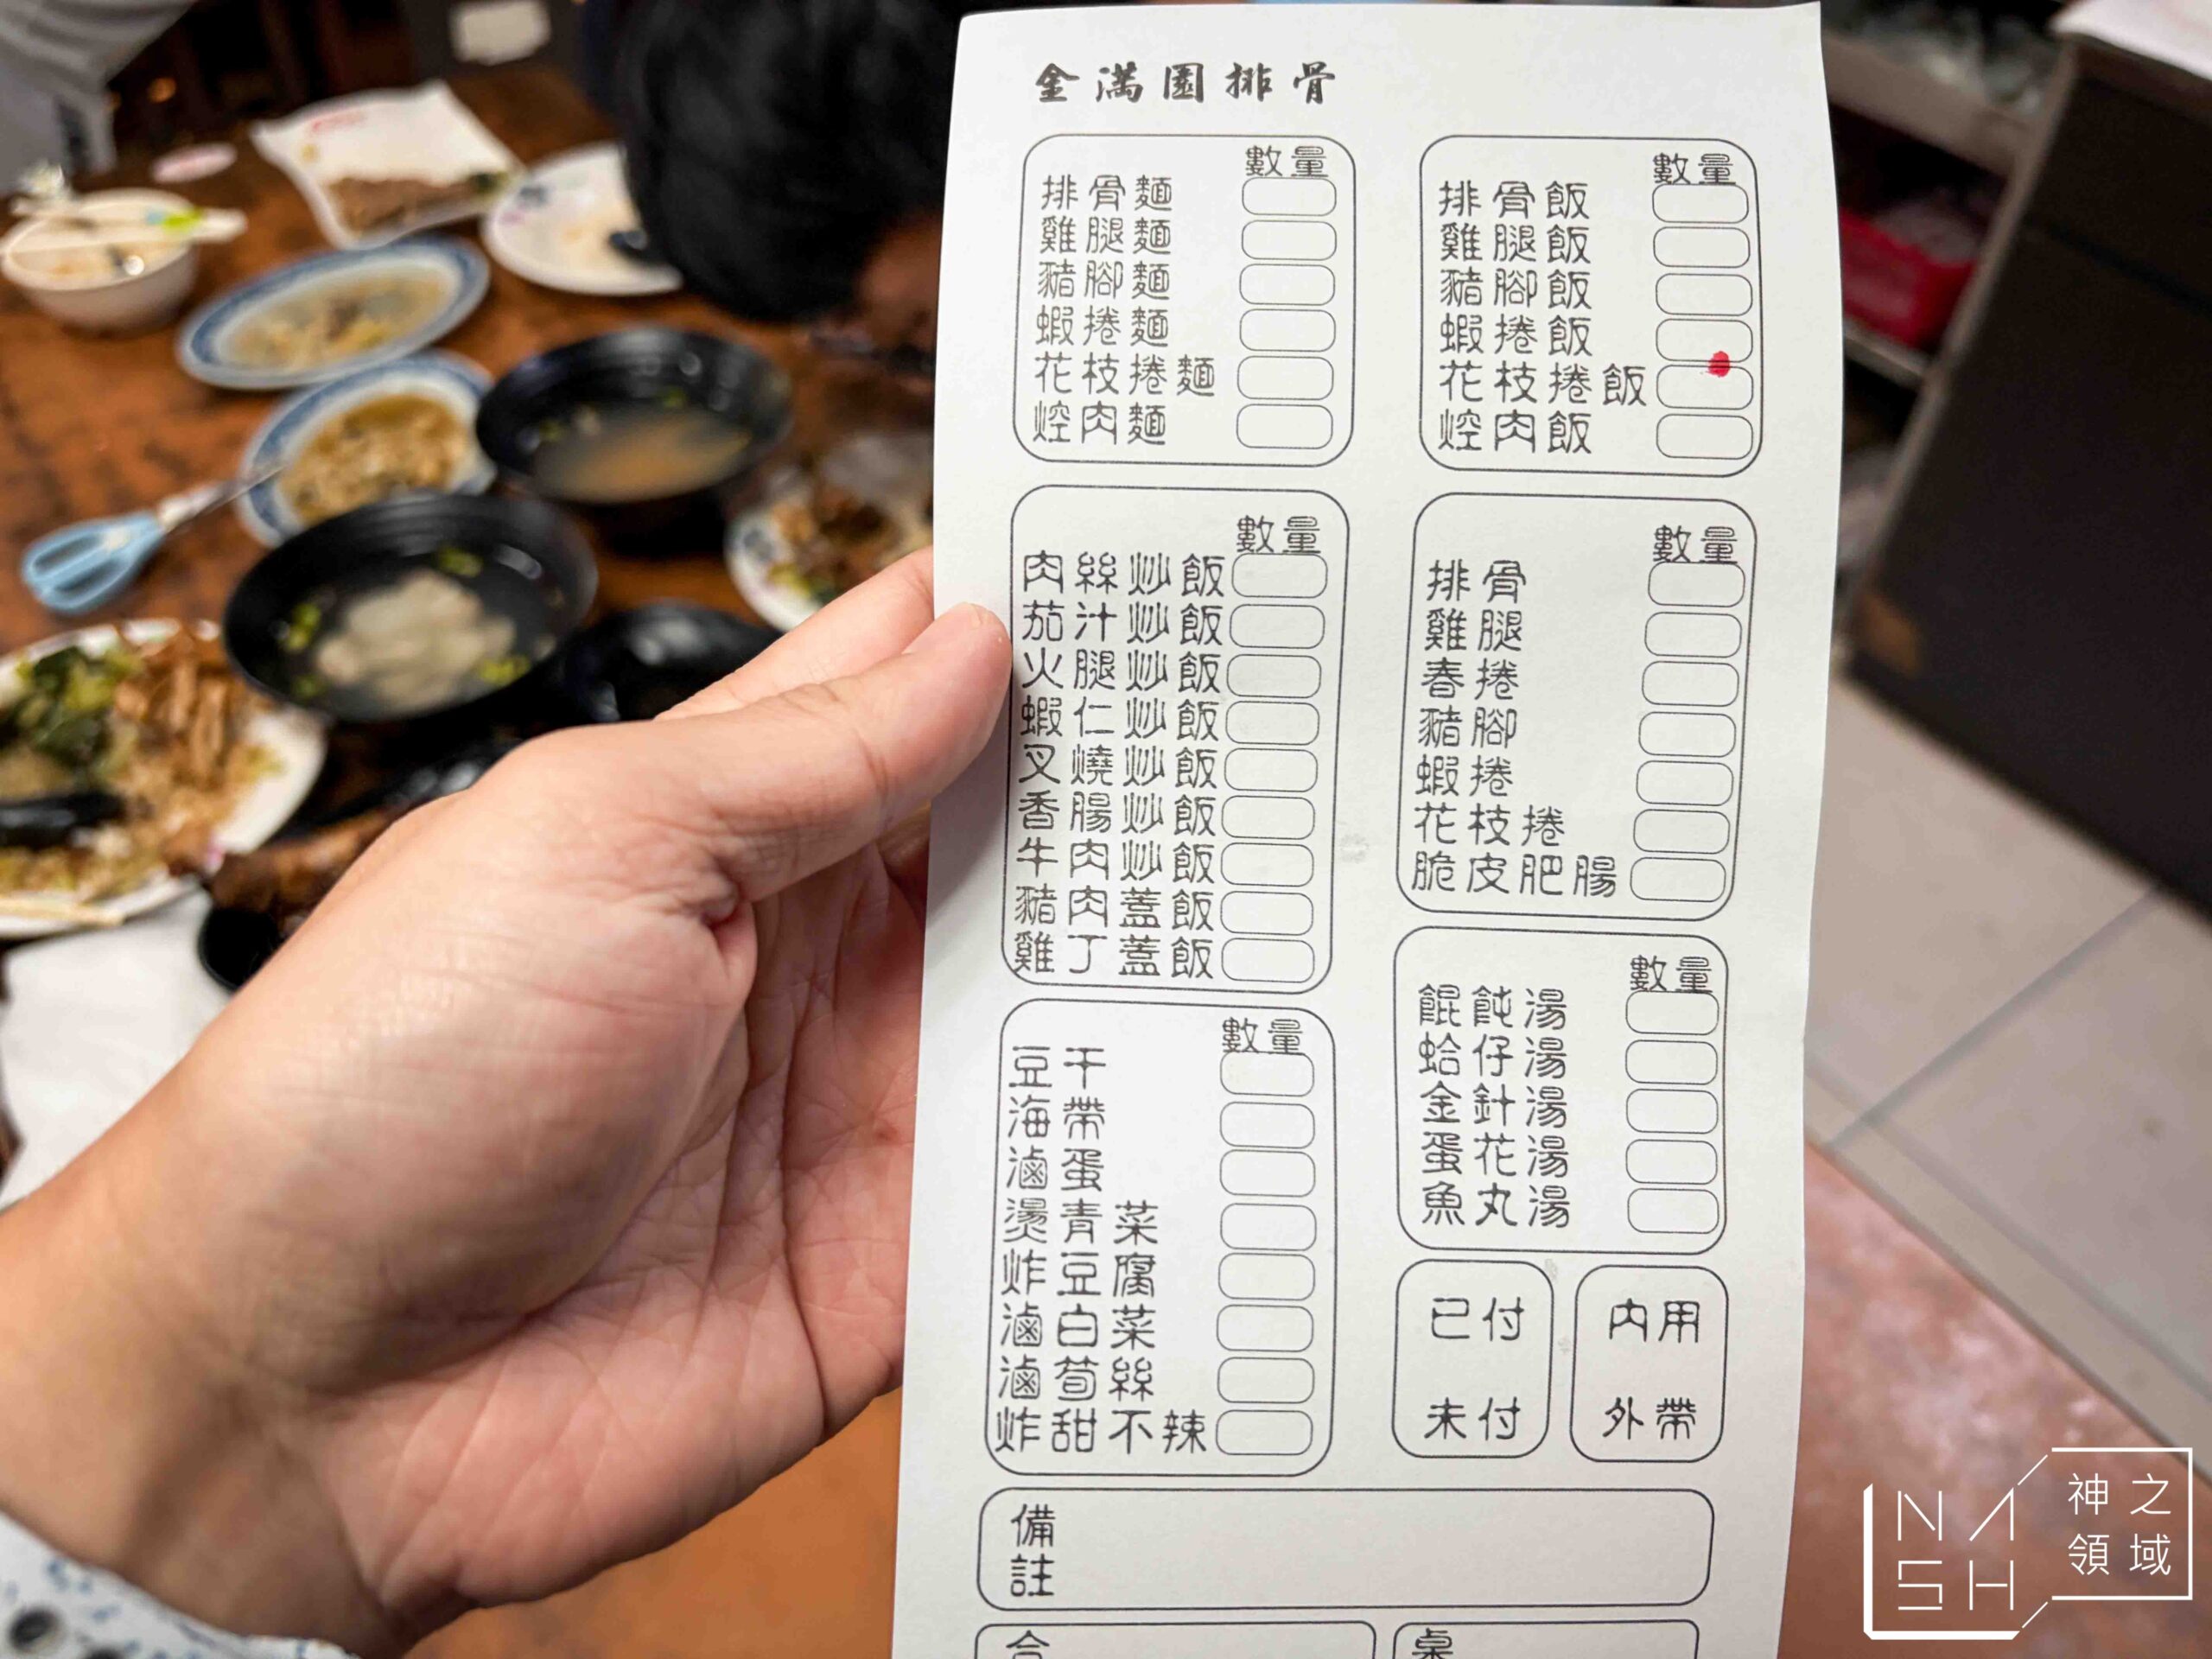 金滿園排骨
數量
排骨麵
雞腿麵
豬腳麵
蝦捲麵
花枝捲麵
焢肉麵
數量
排骨飯
雞腿飯
豬腳飯
蝦捲飯
花枝捲飯
焢肉飯
數量
肉絲炒飯
茄汁炒飯
火腿炒飯
蝦仁炒飯
叉燒炒飯
香腸炒飯
牛肉炒飯
豬肉蓋飯
雞丁蓋飯
數量
排骨
雞腿
春捲
豬腳
蝦捲
花枝捲
脆皮肥腸
數量
豆干
海帶
滷蛋
燙青菜
炸豆腐
滷白菜
滷筍絲
炸甜不辣
數量
餛飩湯
蛤仔湯
金針湯
蛋花湯
魚丸湯
已付
未付
內用
外帶
備註
NASH
神之領域